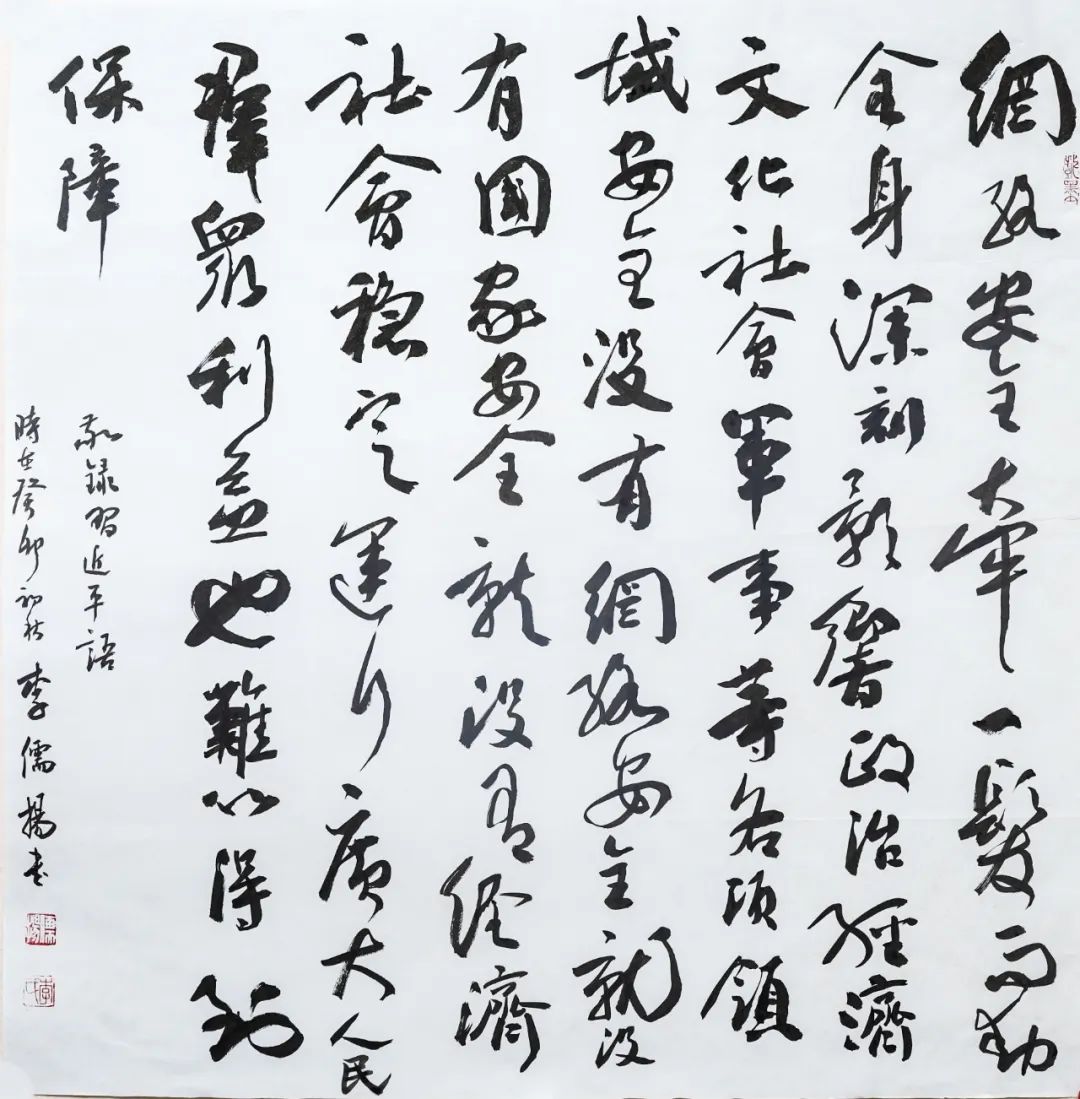 網絡安全牵一髮而動
全身深刻影響政治經濟
文化社會軍事等各項領
域安全没有網絡安全就没
有國家安全就没有經濟
社會稳定運行廣大人民
羣衆利益也難以得到
保障
敬録習近平語
時在癸卯初秋李儒楊書